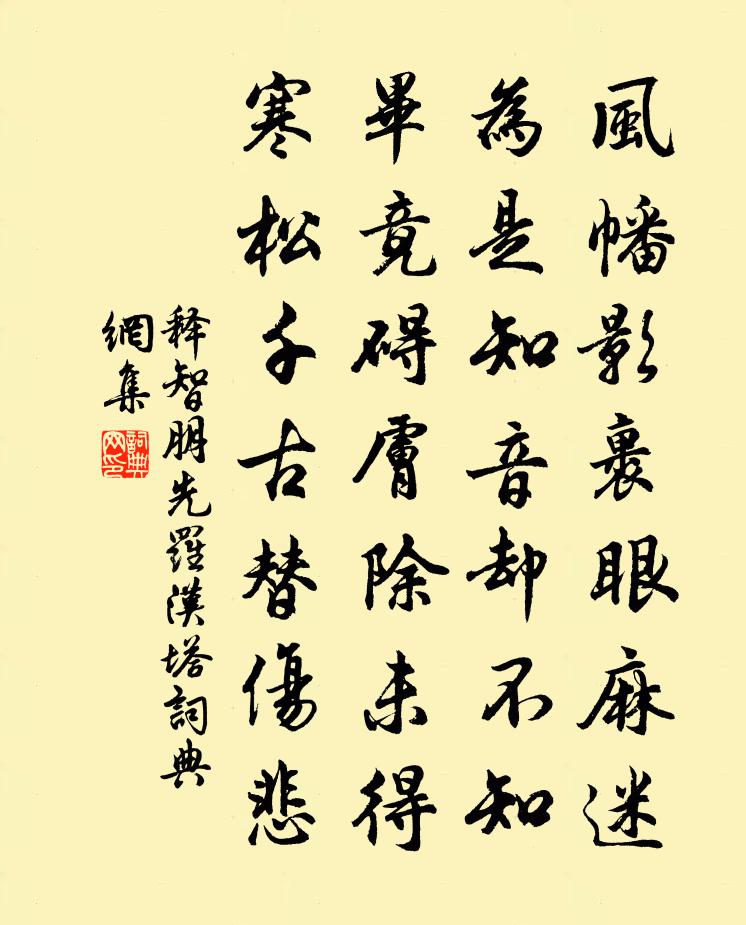 風幡影裏眼麻迷
為是知音却不知
畢竟碍膺除未得
寒松千古替傷悲
释智朋先羅漢塔詞典
網集
詞典網印